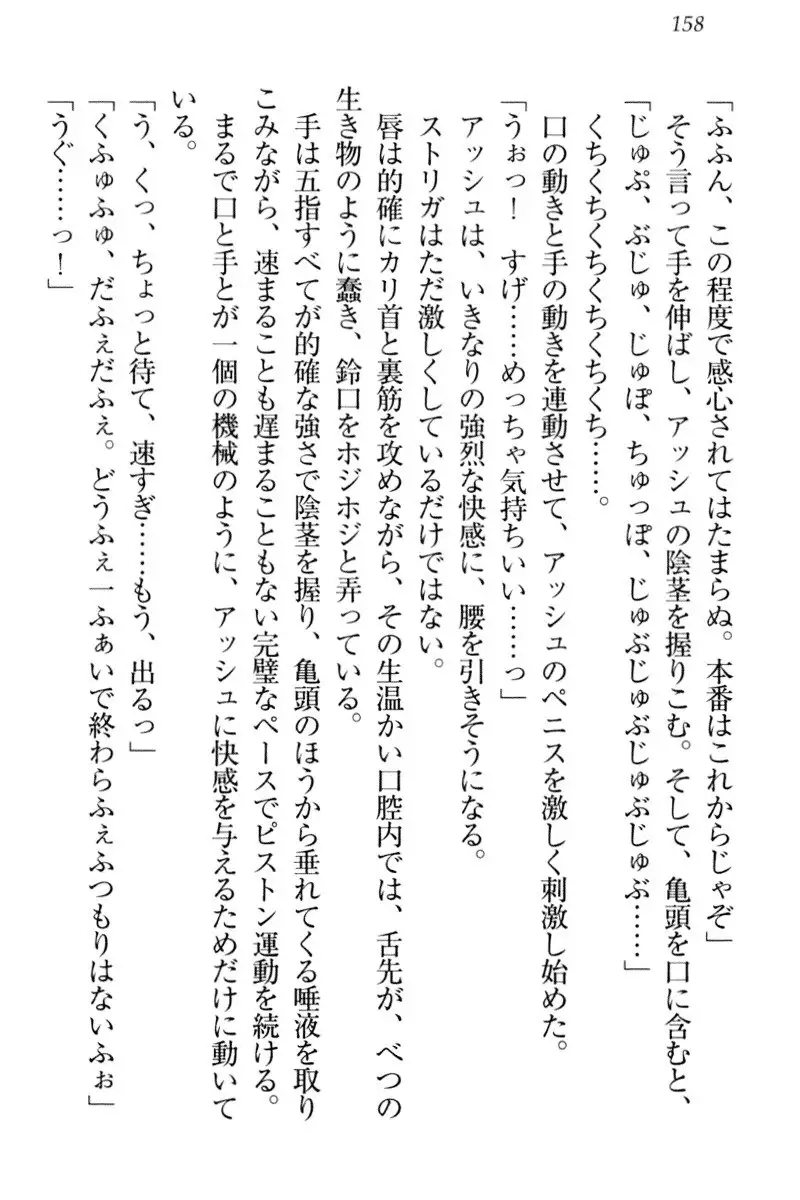 158
「ふふん、この程度で感心されてはたまらぬ。本番はこれからじゃぞ」
そう言って手を伸ばし、アッシュの陰茎を握りこむ。そして、亀頭を口に含むと、
「じゅぷ、ぶじゅ、じゅぽ、ちゅっぽ、じゅぶじゅぶじゅぶじゅぶ……」
くちくちくちくちくち……。
口の動きと手の動きを連動させて、アッシュのペニスを激しく刺激し始めた。
「うぉっ！　すげ……めっちゃ気持ちいい……っ」
アッシュは、いきなりの強烈な快感に、腰を引きそうになる。
ストリガはただ激しくしているだけではない。
唇は的確にカリ首と裏筋を攻めながら、その生温かい口腔内では、舌先が、べつの
生き物のように蠢き、鈴口をホジホジと弄っている。
手は五指すべてが的確な強さで陰茎を握り、亀頭のほうから垂れてくる唾液を取り
こみながら、速まることも遅まることもない完璧なペースでピストン運動を続ける。
まるで口と手とが一個の機械のように、アッシュに快感を与えるためだけに動いて
いる。
「う、くっ、ちょっと待て、速すぎ……もう、出るっ」
「くふゅふゅ、だふぇだふぇ。どうふぇーふぁいで終わらふぇふつもりはないふぉ」
「うぐ……っ！」